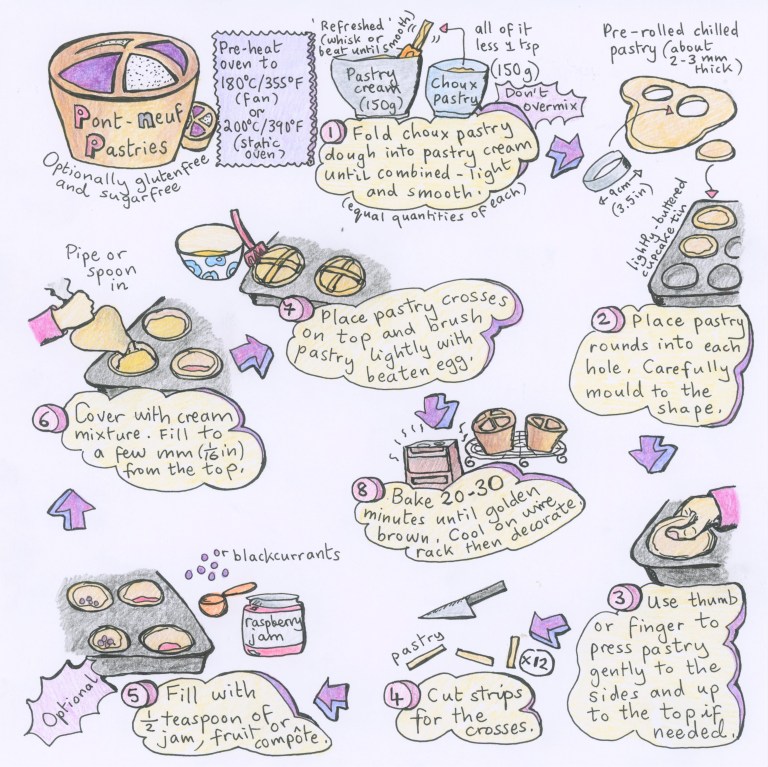 Pont-Neuf
Pastries
Optionally glutenfree
and sugarfree
Pre-heat
oven to
180°C/355°F
(fan)
or
200°C/390°F
(static
oven)
'Refreshed'
(whisk or
beat until smooth)
Pastry
cream
(150g)
all of it
less 1 tsp
(150g)
Choux
Pastry
Don't
overmix
1 Fold choux pastry
dough into pastry cream
until combined - light
and smooth.
(equal quantities of each)
Pre-rolled chilled
pastry (about
2-3 mm
thick)
9cm
(3.5in)
lightly-buttered
cupcake tin
2 Place pastry
rounds into each
hole. Carefully
mould to the
shape.
3 Use thumb
or finger to
press pastry
gently to the
sides and up
to the top if
needed.
pastry
x12
4 Cut strips
for the
crosses.
or blackcurrants
raspberry
jam
Optional
5 Fill with
1/2 teaspoon of
jam, fruit or
compôte.
Pipe or
spoon
in
6 Cover with cream
mixture. Fill to
a few mm (1/16 in)
from the top.
7 Place pastry crosses
on top and brush
pastry lightly with
beaten egg.
8 Bake 20-30
minutes until golden
brown. Cool on wire
rack then decorate.